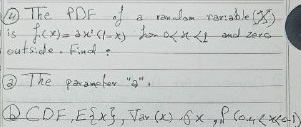 ④ The PDF of a random variable (X)
is f(x) = ax²(1-x) for 0<x<1 and zero
outside. Find:
ⓐ The parameter "a".
ⓑ CDF, E{X}, Var(x), σx, P(0.4<x<